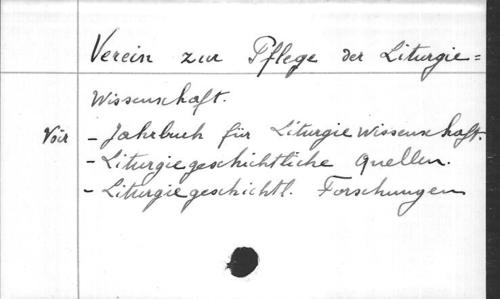 Verein zur Pflege der Liturgie=
Wissenschaft.
Voir - Jahrbuch für Liturgiewissenschaft.
- Liturgiegeschichtliche Quellen.
- Liturgiegeschichtl. Forschungen